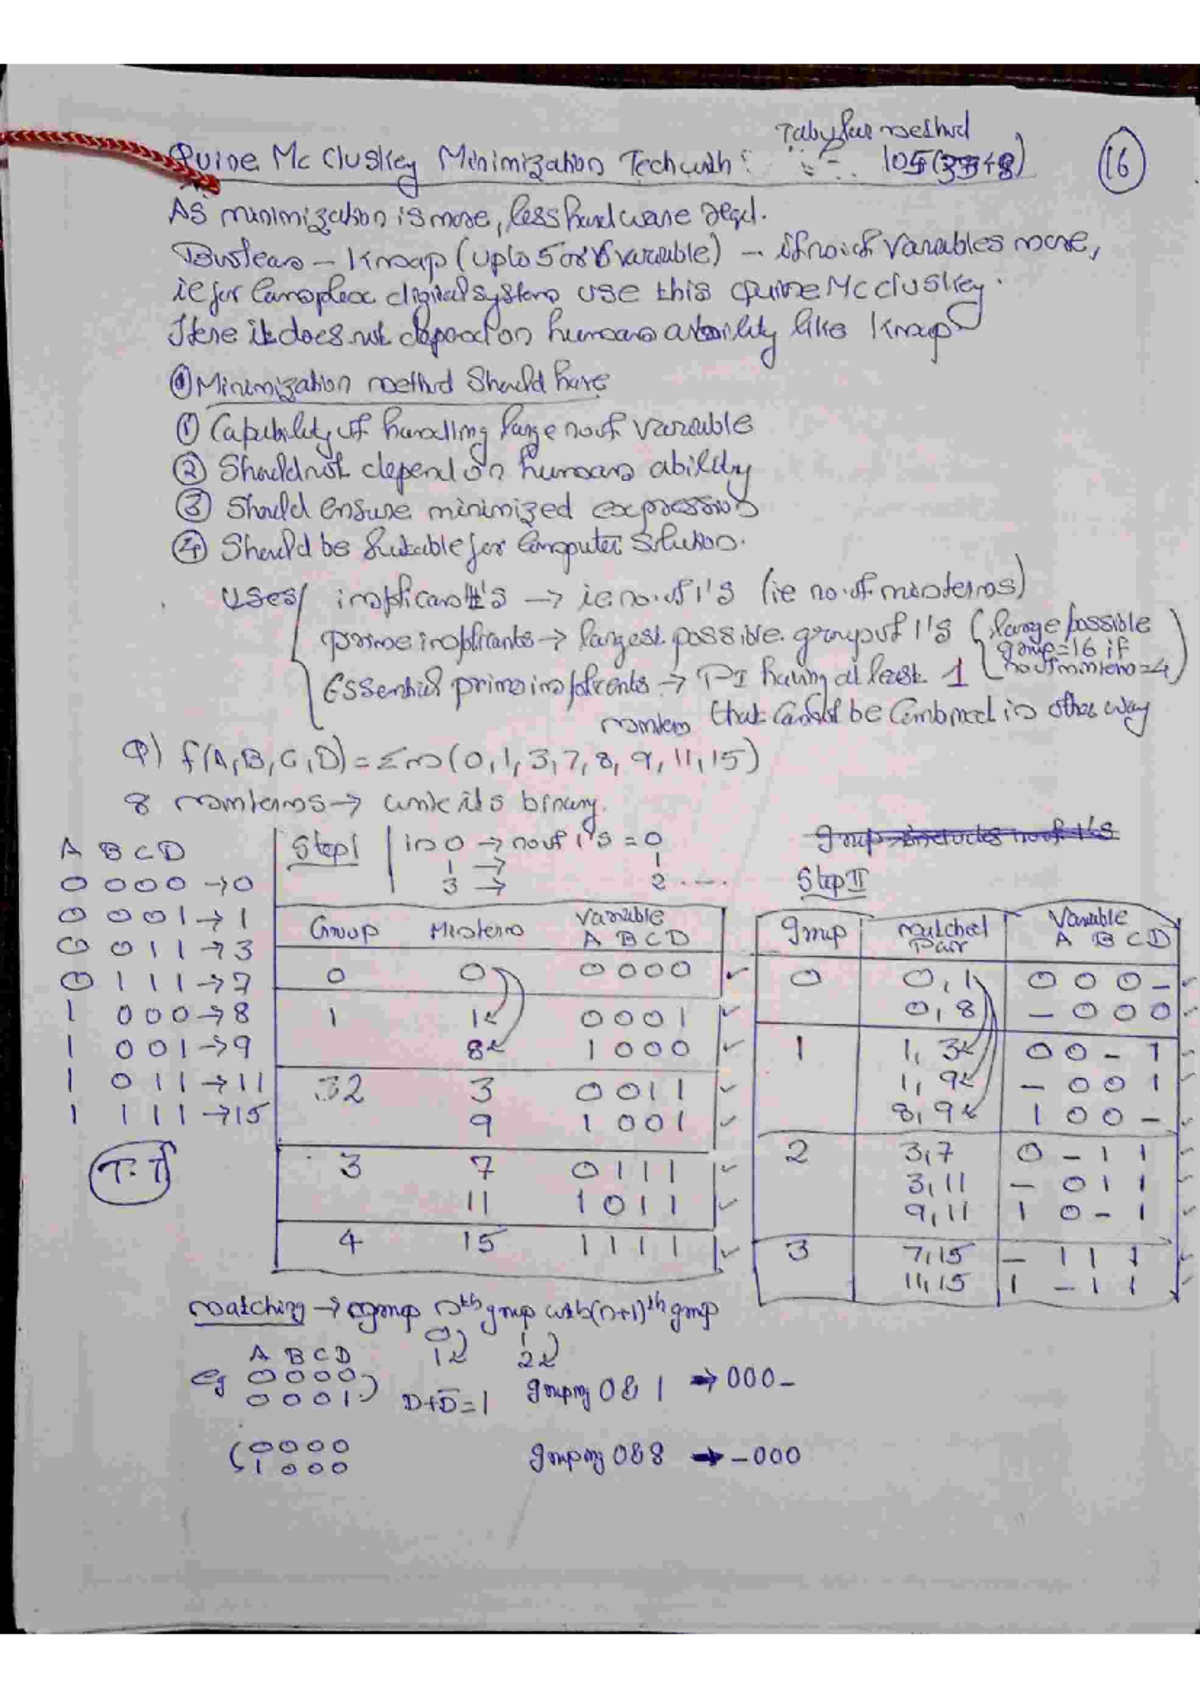 Tabular method
Quine Mc Cluskey Minimization Technish:
16
As minimization is more, less hardware reqd.
Boolean - Kmap (upto 5 or 6 variable) - if no. of variables more,
ie for Complex digital system use this quine Mc cluskey.
Here it does not depend on human ability like Kmap
Minimization method Should have
① Capability of handling large no of variable
② Should not depend on human ability
③ Should ensure minimized expression
④ Should be Suitable for Computer Solution.
Uses implicants → ie no. of 1's (ie no. of minterms)
prime implicants → largest possible group of 1's (large possible
group=16 if
no of minterm=4)
Essential prime implicants → PI having at least 1
minterm that cannot be Combined in other way
Q) f(A,B,C,D) = Σm(0,1,3,7,8,9,11,15)
8 minterms → write its binary.
A B C D
0 0 0 0 → 0
0 0 0 1 → 1
0 0 1 1 → 3
0 1 1 1 → 7
1 0 0 0 → 8
1 0 0 1 → 9
1 0 1 1 → 11
1 1 1 1 → 15
T.T
Step I in 0 → no of 1's = 0
1 → 1
3 → 2 ....
Group Minterm Variable
A B C D
0 0 0 0 0 0 ✓
1 1 0 0 0 1 ✓
8 1 0 0 0 ✓
2 3 0 0 1 1 ✓
9 1 0 0 1 ✓
3 7 0 1 1 1 ✓
11 1 0 1 1 ✓
4 15 1 1 1 1 ✓
group includes no of 1's
Step II
group matched Pair Variable
A B C D
0 0,1 0 0 0 - ✓
0,8 - 0 0 0 ✓
1 1,3 0 0 - 1 ✓
1,9 - 0 0 1 ✓
8,9 1 0 0 - ✓
2 3,7 0 - 1 1 ✓
3,11 - 0 1 1 ✓
9,11 1 0 - 1 ✓
3 7,15 - 1 1 1 ✓
11,15 1 - 1 1 ✓
matching → group nth group with (n+1)th group
0 1
1 2
A B C D
eg 0 0 0 0
0 0 0 1
D+D̅=1 grouping 0 & 1 → 000-
0 0 0 0
1 0 0 0
grouping 0 & 8 → -000